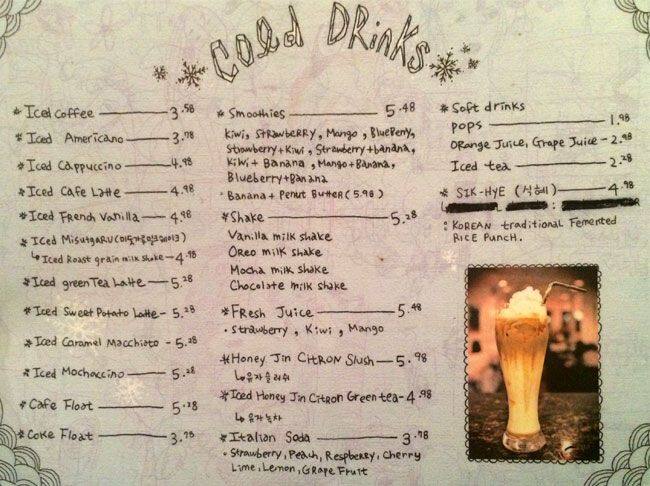 Cold Drinks
* Iced Coffee — 3.58
* Iced Americano — 3.78
* Iced Cappuccino — 4.98
* Iced Cafe Latte — 4.98
* Iced French Vanilla — 4.98
* Iced Misutgaru
↳ Iced Roast grain milk shake — 4.98
* Iced green Tea Latte — 5.28
* Iced Sweet Potato Latte - 5.28
* Iced Caramel Macchiato - 5.28
* Iced Mochaccino — 5.28
* Cafe Float — 5.28
* Coke Float — 3.78
* Smoothies — 5.48
Kiwi, Strawberry, Mango, Blueberry,
Strawberry + Kiwi, Strawberry + banana,
Kiwi + Banana, Mango + Banana,
Blueberry + Banana
· Banana + Penut Butter (5.98)
* Shake — 5.28
Vanilla milk shake
Oreo milk shake
Mocha milk shake
Chocolate milk shake
* Fresh Juice — 5.48
· Strawberry, Kiwi, Mango
* Honey Jin Citron Slush — 5.98
↳ 유자슬러쉬
* Iced Honey Jin Citron Green tea - 4.98
↳ 유자녹차
* Italian Soda — 3.78
· Strawberry, Peach, Respberry, Cherry
Lime, Lemon, Grape Fruit
* Soft drinks
Pops — 1.98
Orange Juice, Grape Juice - 2.98
Iced tea — 2.28
* SIK-HYE (식혜) — 4.98
: Korean traditional Femented
Rice Punch.